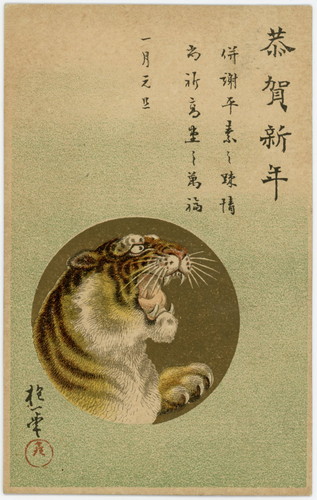 恭賀新年
併謝平素之疎情
尚祈高堂之萬福
一月元旦